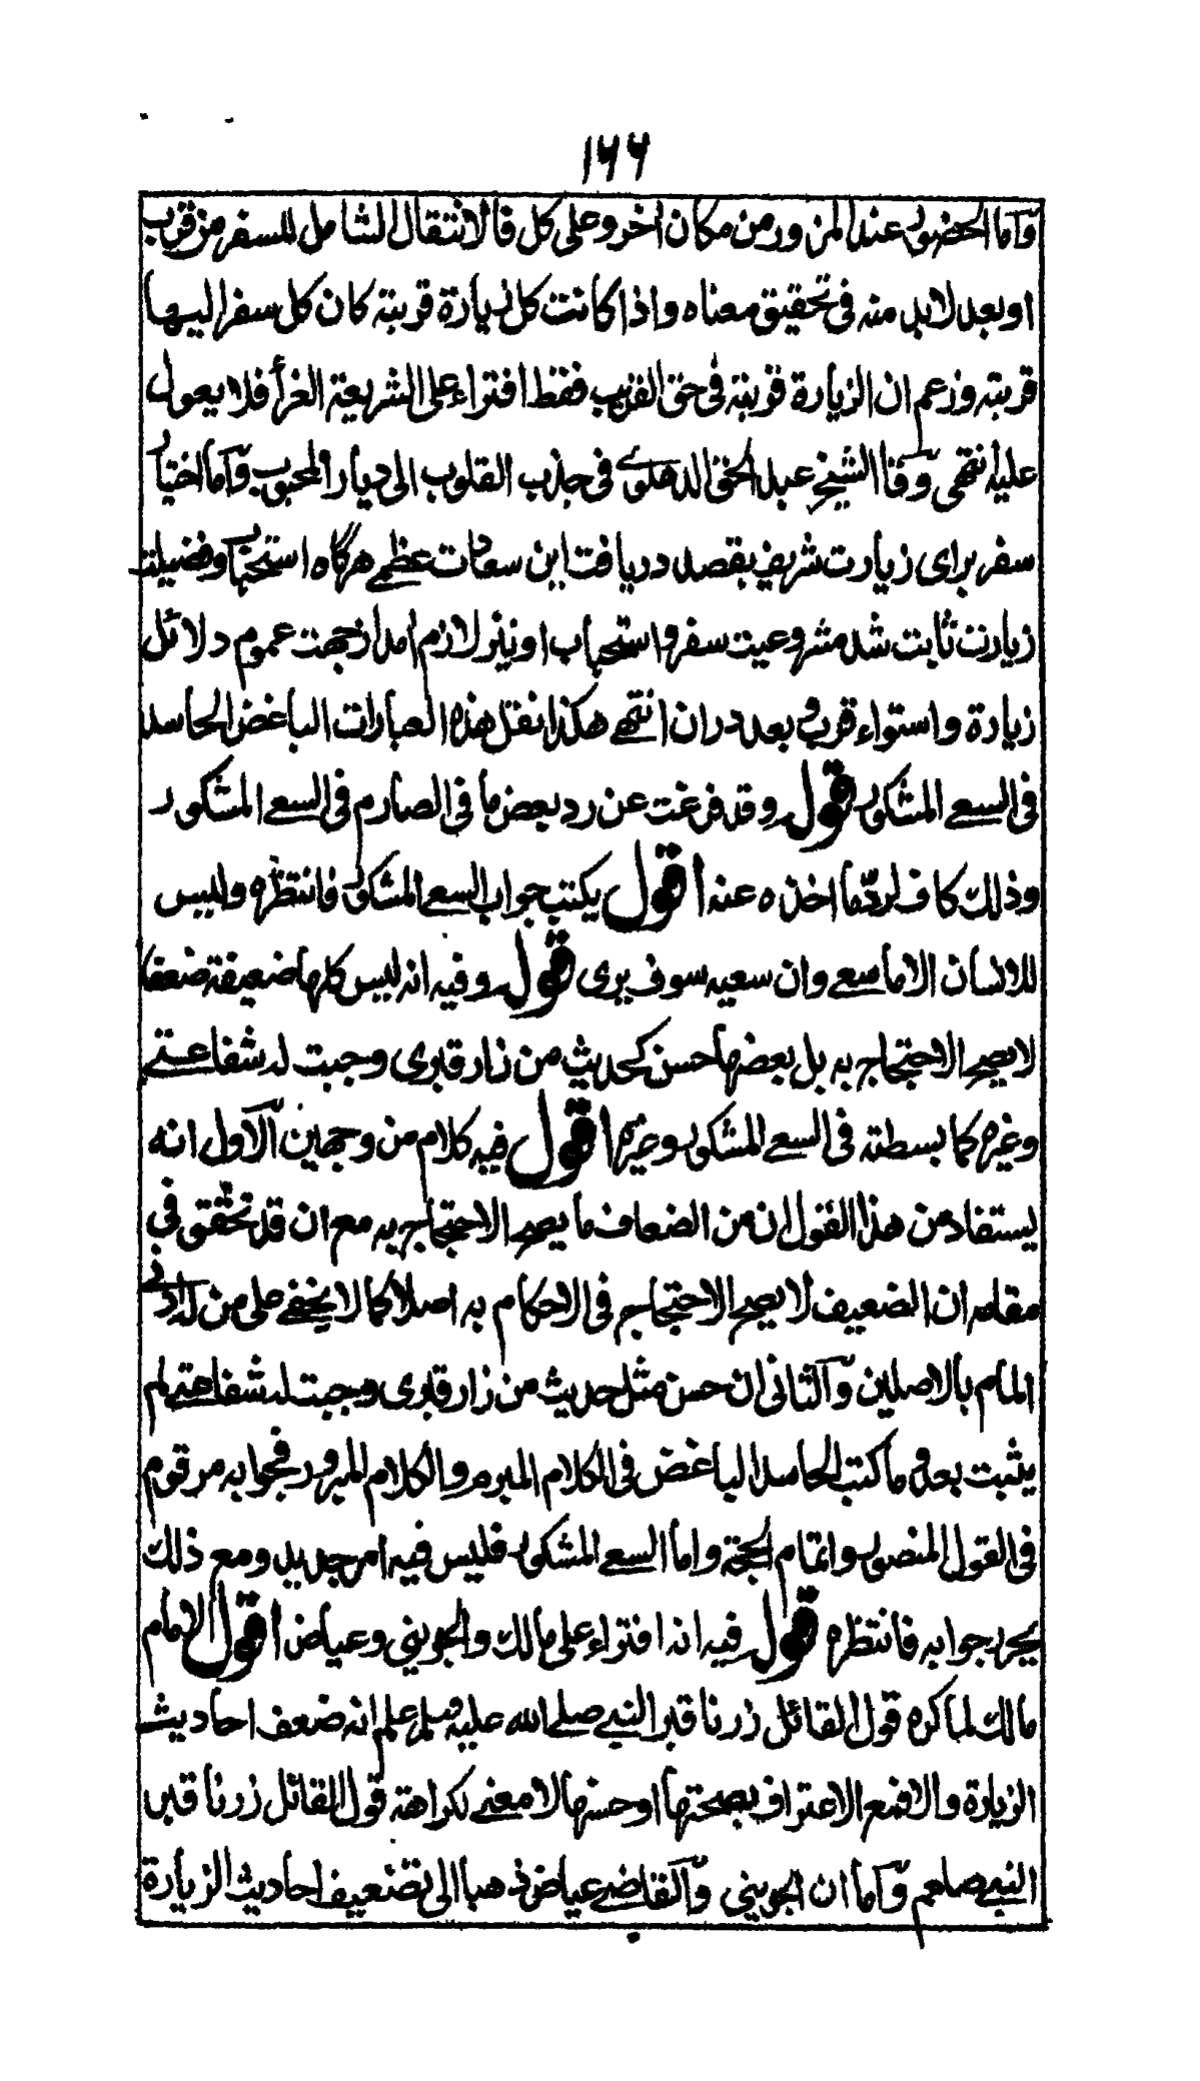 ۱۶۶
وآما الحضور عند المزور من مكان اخر وعلى كل فالانتقال الشامل للسفر من قرب
او بعد لابد منه فى تحقيق معناه واذا كانت كل زيارة قربتہ كان كل سفر اليها
قربتہ وزعم ان الزيارة قربتہ فى حق القريب فقط افتراء على الشريعة الغرأ فلا يعول
عليہ انتهى وقا الشيخ عبد الحق الدهلوے فى جذب القلوب الى ديار المحبوب وآما اختيار
سفر براى زيارت شريف بقصد دريافت اين سعادت عظمے هرگاه استحباب وفضيلت
زيارت ثابت شد مشروعيت سفر و استحباب او نيز لازم امد از جهت عموم دلائل
زيارة واستواء قرب و بعد دران انتهے هكذا نقل هذه العبارات الباغض الحاسد
فى السعے المشكور قولہ وقد فرغت عن رد بعض ما فى الصارم فى السعے المشكور
وذلك كاف لرد ما اخذه عنه اقول يكتب جواب السعے المشكور فانتظره وليس
للانسان الا ما سعے وان سعيه سوف يرى قولہ وفيه انہ ليس كلها ضعيفة ضعفا
لا يصح الاحتجاج به بل بعضها حسن كحديث من زار قبرى وجبت لہ شفاعتے
وغيره كما بسطتہ فى السعے المشكور وغيره اقول فيہ كلام من وجهين الآول انه
يستفاد من هذا القول ان من الضعاف ما يصح الاحتجاج به مع ان قد تحقق فى
مقامہ ان الضعيف لا يصح الاحتجاج فى الاحكام بہ اصلا كما لا يخفے على من لہ ادنى
المام بالاصلين وآلثانى ان حسن مثل حديث من زار قبرى وجبت لہ شفاعتے لم
يثبت بعد و ما كتب الحاسد الباغض فى الكلام المبرم والكلام المبرور فجوابہ مرقوم
فى القول المنصور واتمام الحجة واما السعے المشكور فليس فيہ امر جديد ومع ذلك
يحرر جوابہ فانتظره قولہ فيہ انہ افتراء على مالك والجوينى وعياض اقول الامام
مالك لما كره قول القائل زرنا قبر النبے صلے الله عليہ وسلم علم انہ ضعف احاديث
الزيارة والا فمع الاعتراف بصحتها او حسنها لا معنے لكراهة قول القائل زرنا قبر
النبے صلعم وآما ان الجوينى وآلقاضے عياض ذهبا الى تضعيف احاديث الزيارة